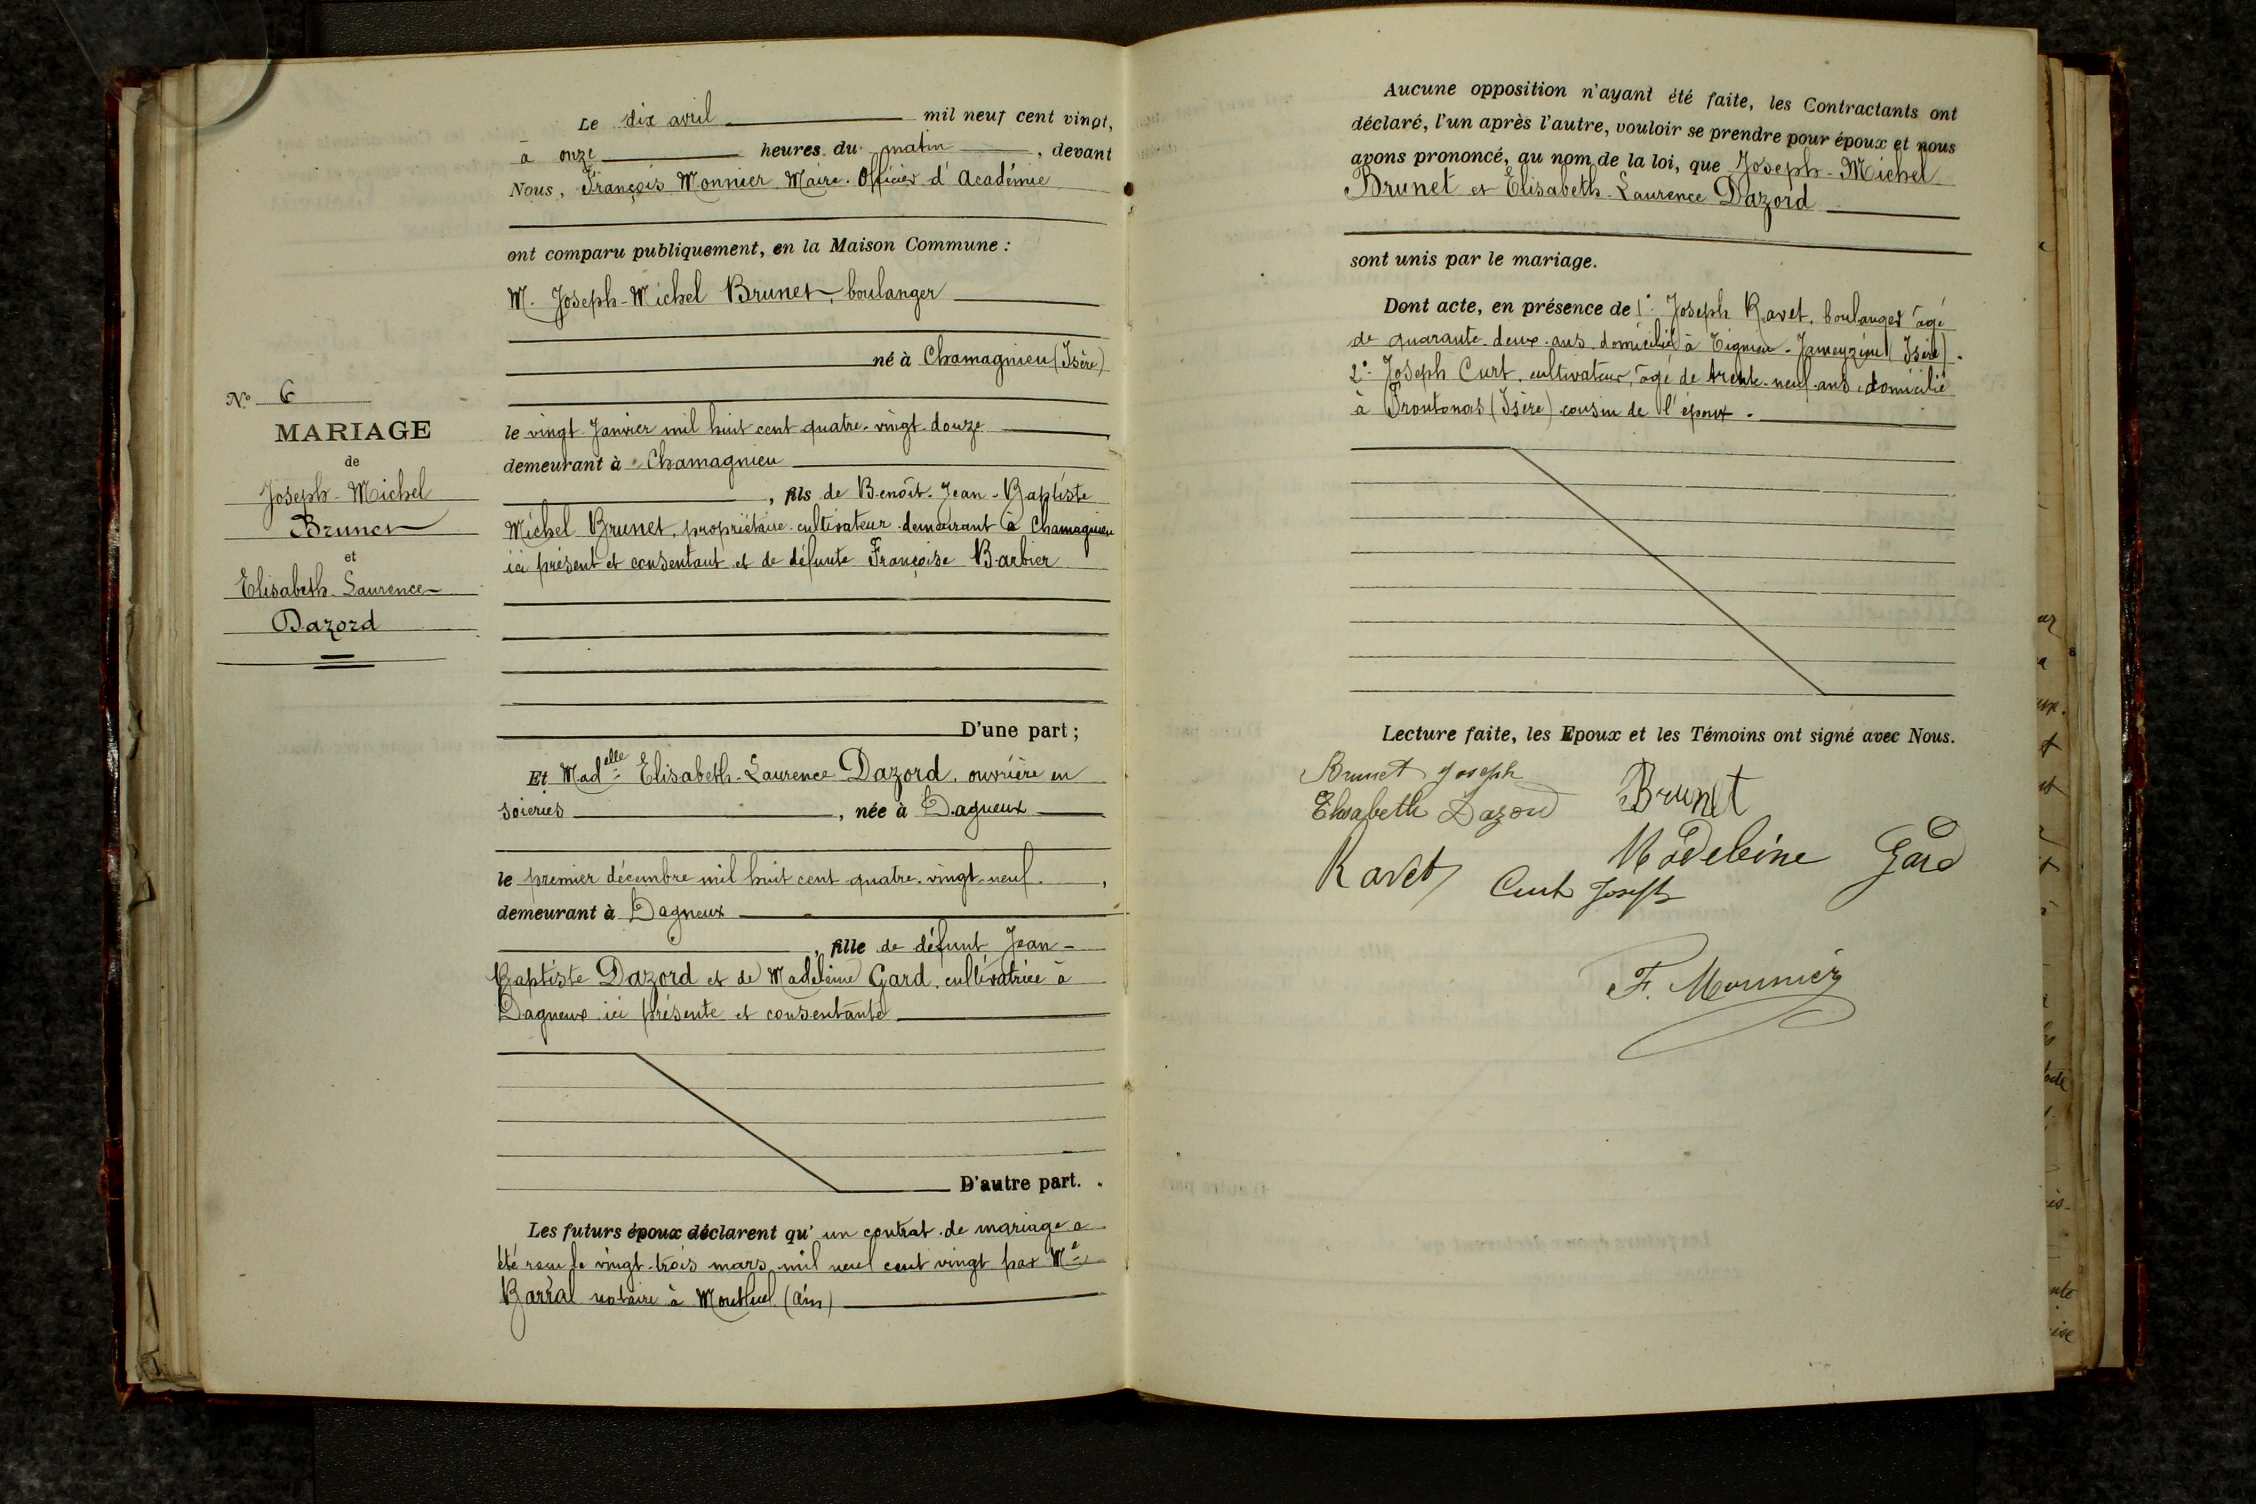 Le dix avril mil neuf cent vingt,
à onze heures du matin, devant
Nous, François Monnier Maire. Officier d'Académie
ont comparu publiquement, en la Maison Commune :
M. Joseph-Michel Brunet, boulanger
né à Chamagnieu (Isère)
le vingt Janvier mil huit cent quatre-vingt-douze
demeurant à Chamagnieu
, fils de Benoît-Jean-Baptiste
Michel Brunet, propriétaire-cultivateur demeurant à Chamagnieu
ici présent et consentant et de défunte Françoise Barbier
D'une part ;
Et Madelle Elisabeth-Laurence Dazord, ouvrière en
soieries, née à Dagneux
le premier décembre mil huit cent quatre-vingt-neuf,
demeurant à Dagneux
, fille de défunt Jean-
Baptiste Dazord et de Madeleine Gard, cultivatrice à
Dagneux ici présente et consentante
D'autre part.
Les futurs époux déclarent qu'un contrat de mariage a
été reçu le vingt-trois mars mil neuf cent vingt par Me
Barral notaire à Montluel (Ain)
N° 6
MARIAGE
de
Joseph-Michel
Brunet
et
Elisabeth-Laurence
Dazord
Aucune opposition n'ayant été faite, les Contractants ont
déclaré, l'un après l'autre, vouloir se prendre pour époux et nous
avons prononcé, au nom de la loi, que Joseph-Michel
Brunet et Elisabeth-Laurence Dazord
sont unis par le mariage.
Dont acte, en présence de 1° Joseph Ravet, boulanger âgé
de quarante-deux ans domicilié à Tignieu-Jameyzieu (Isère).
2° Joseph Curt, cultivateur, âgé de trente-neuf ans, domicilié
à Frontonas (Isère) cousin de l'époux.
Lecture faite, les Epoux et les Témoins ont signé avec Nous.
Brunet Joseph
Elisabeth Dazord Brunet
Madeleine Gard
Ravet Curt Joseph
F. Monnier